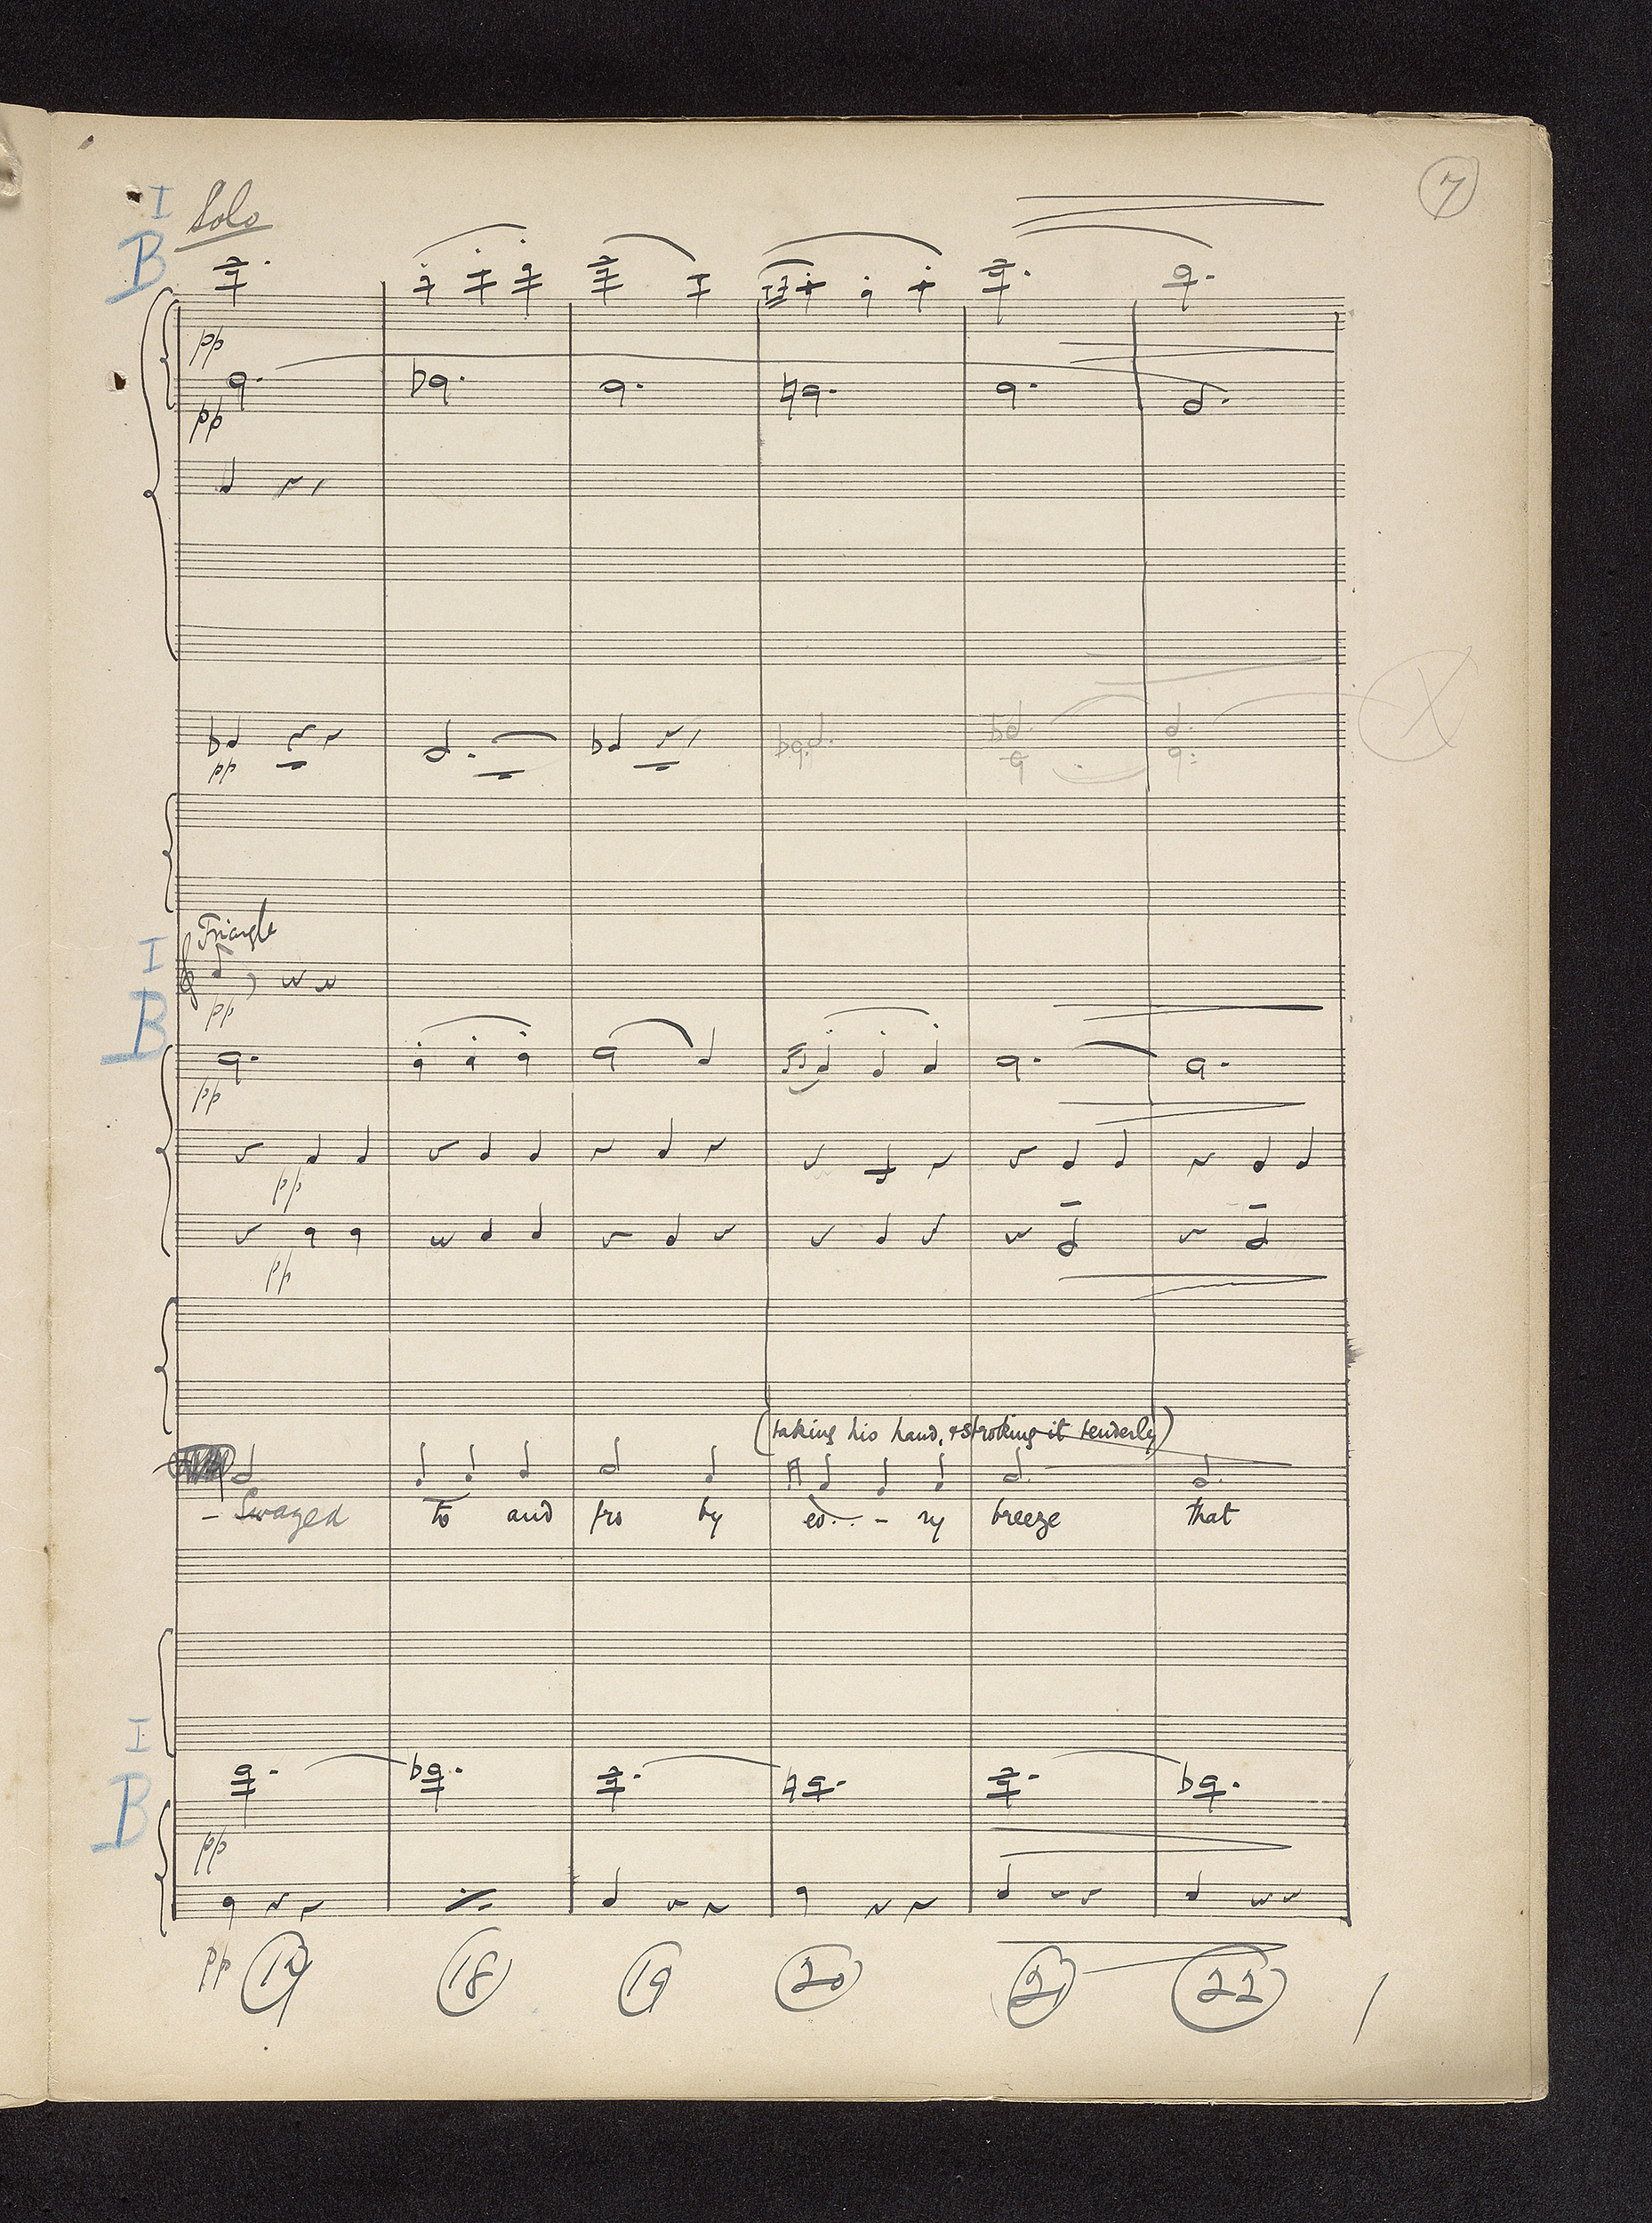 7
I
Solo
B
pp
pp
pp
Triangle
I
pp
B
pp
pp
pp
(taking his hand, & stroking it tenderly)
- Swayed to and fro by ev - ry breeze that
I
B
pp
pp 17 18 19 20 21 22